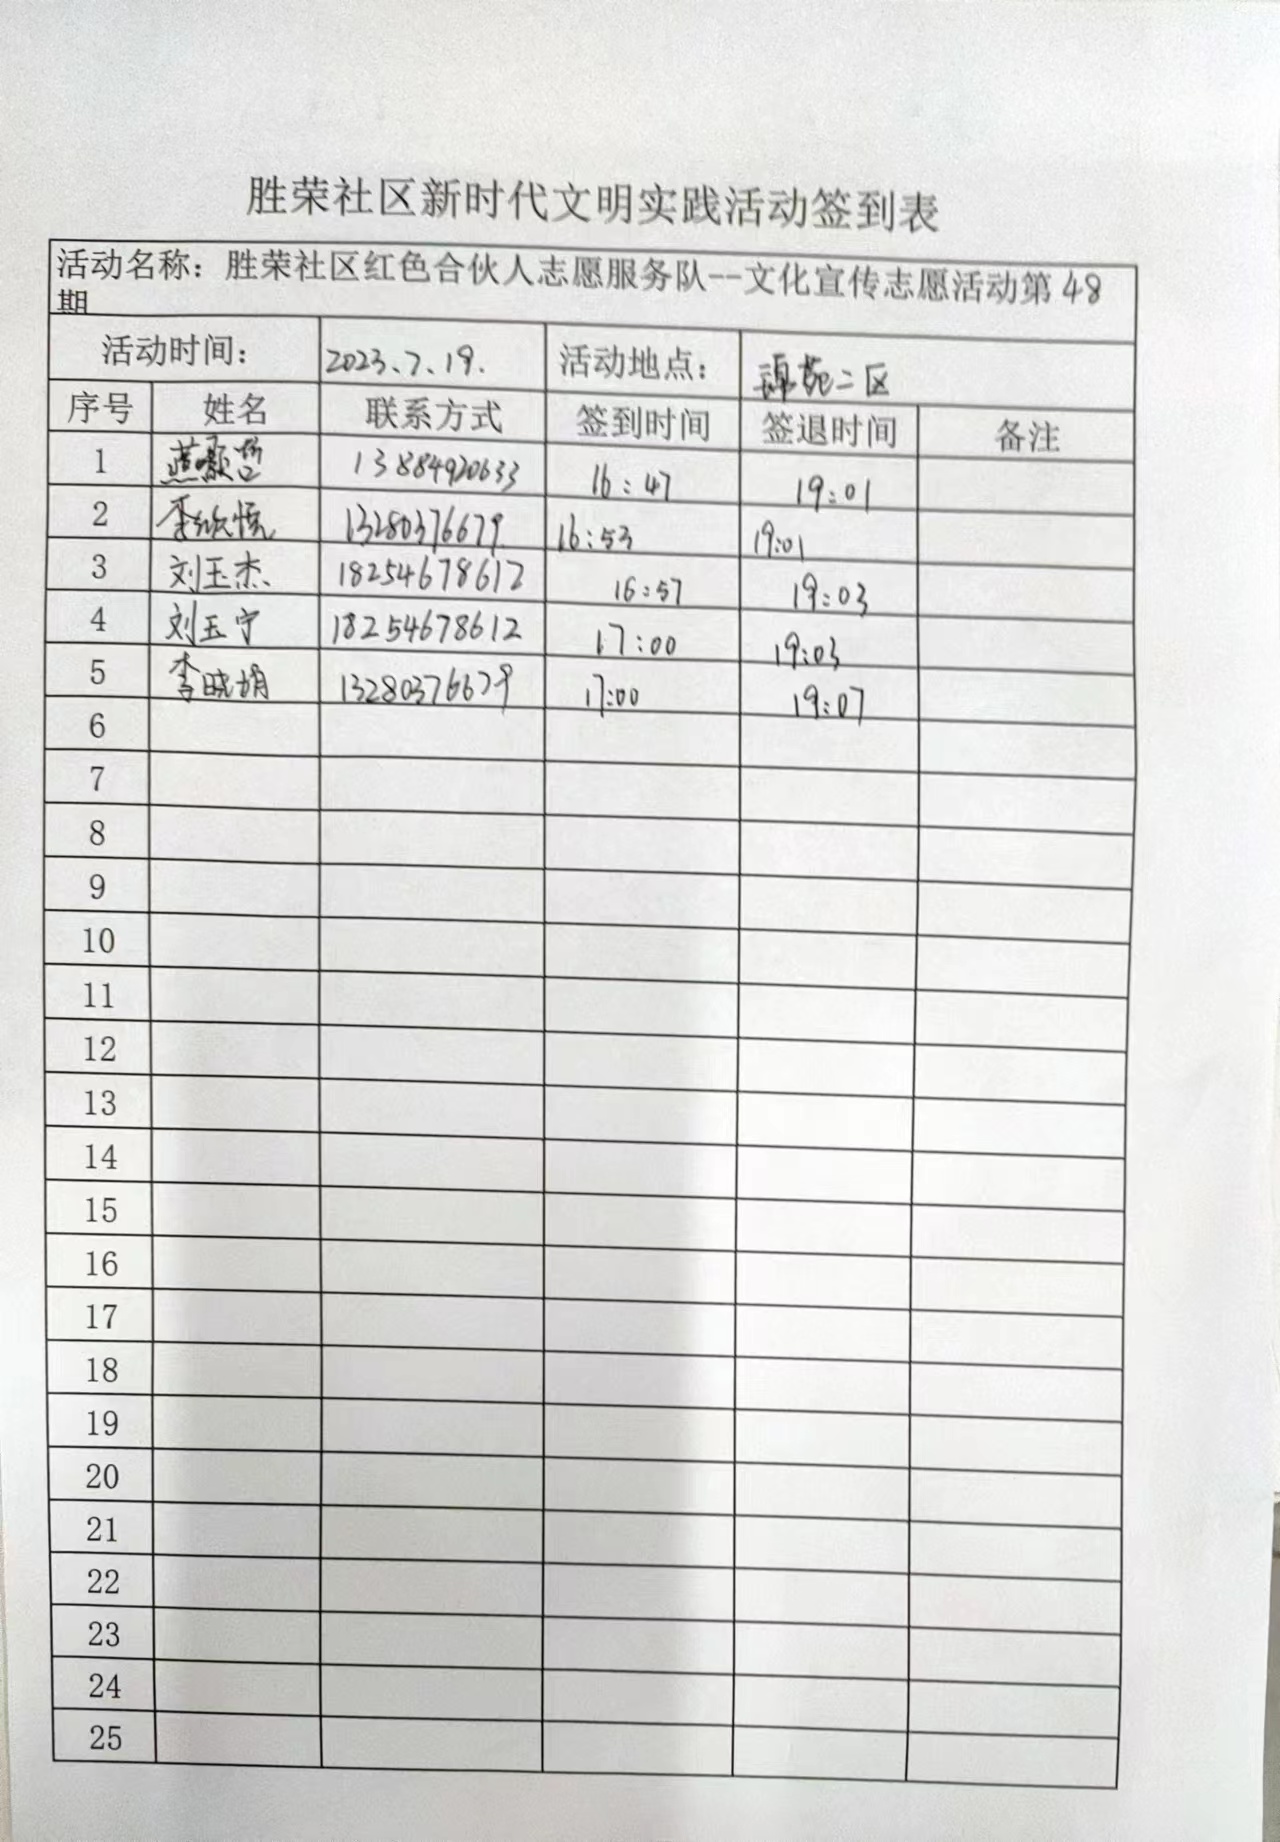 胜荣社区新时代文明实践活动签到表
活动名称：胜荣社区红色合伙人志愿服务队--文化宣传志愿活动第48
期
活动时间： 2023、7、19. 活动地点： 锦苑二区
序号 姓名 联系方式 签到时间 签退时间 备注
1 燕 哲 13884920633 16:47 19:01
2 李欣悦 13280376679 16:53 19:01
3 刘玉杰 18254678612 16:57 19:03
4 刘玉宁 18254678612 17:00 19:03
5 李晓娟 13280376679 17:00 19:07
6
7
8
9
10
11
12
13
14
15
16
17
18
19
20
21
22
23
24
25